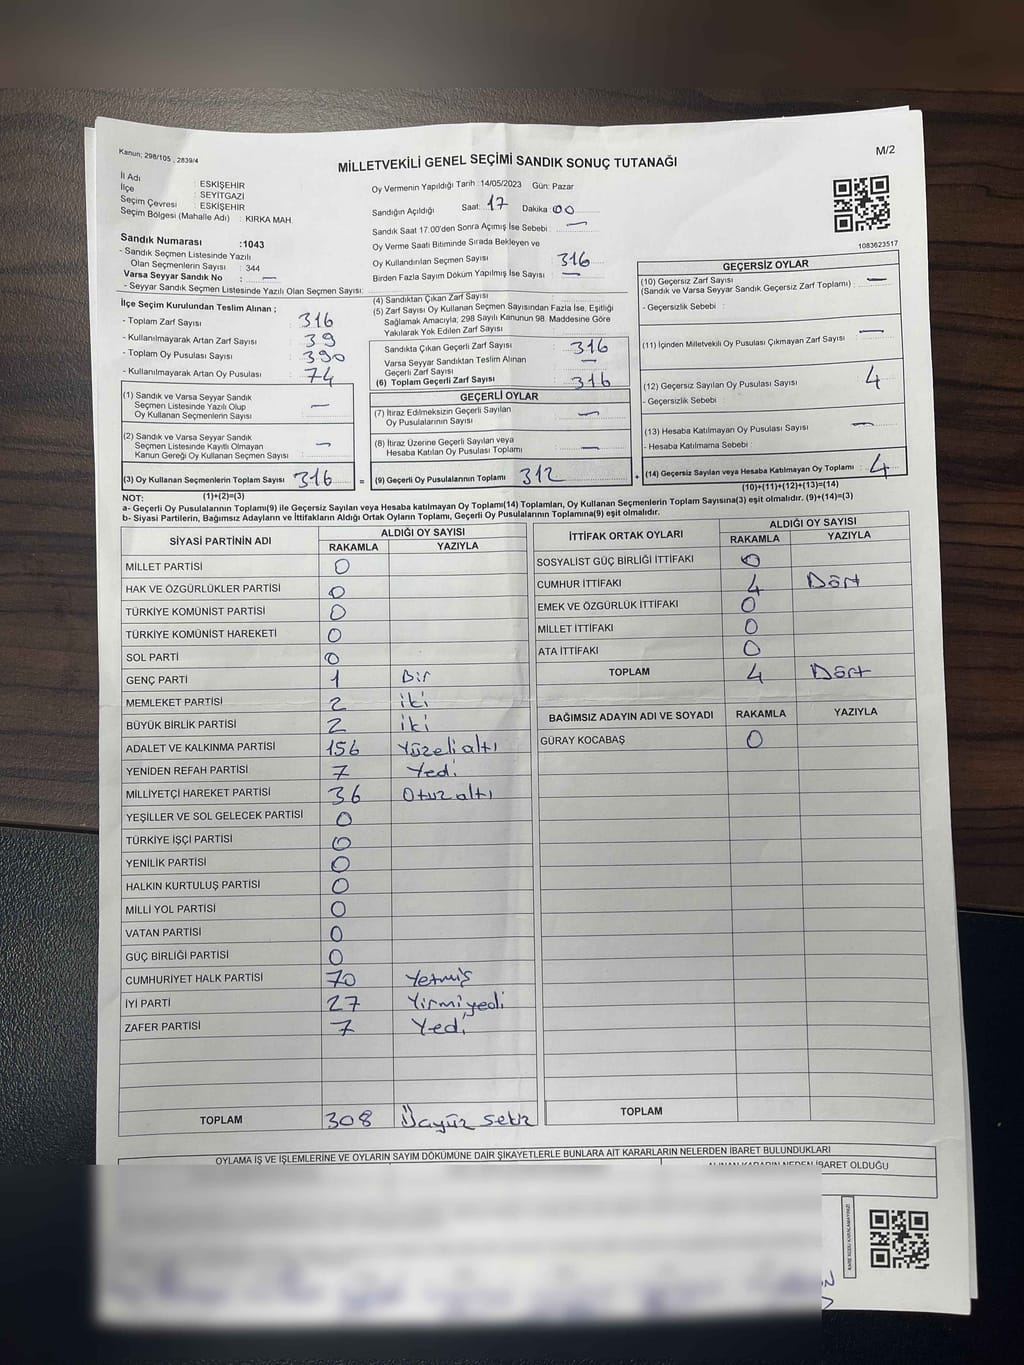 Kanun; 298/105 , 2839/4
MİLLETVEKİLİ GENEL SEÇİMİ SANDIK SONUÇ TUTANAĞI
M/2
İl Adı : ESKİŞEHİR
İlçe : SEYİTGAZİ
Seçim Çevresi : ESKİŞEHİR
Seçim Bölgesi (Mahalle Adı) : KIRKA MAH
Oy Vermenin Yapıldığı Tarih : 14/05/2023 Gün: Pazar
Sandığın Açıldığı Saat: 17 Dakika 00
Sandık Saat 17.00'den Sonra Açımış İse Sebebi : —
Oy Verme Saati Bitiminde Sırada Bekleyen ve
Oy Kullandırılan Seçmen Sayısı : 316
Birden Fazla Sayım Döküm Yapılmış İse Sayısı : —
1083623517
Sandık Numarası :1043
- Sandık Seçmen Listesinde Yazılı
Olan Seçmenlerin Sayısı : 344
Varsa Seyyar Sandık No : —
- Seyyar Sandık Seçmen Listesinde Yazılı Olan Seçmen Sayısı:
İlçe Seçim Kurulundan Teslim Alınan ;
- Toplam Zarf Sayısı : 316
- Kullanılmayarak Artan Zarf Sayısı : 39
- Toplam Oy Pusulası Sayısı : 390
- Kullanılmayarak Artan Oy Pusulası : 74
(1) Sandık ve Varsa Seyyar Sandık
Seçmen Listesinde Yazılı Olup
Oy Kullanan Seçmenlerin Sayısı : —
(2) Sandık ve Varsa Seyyar Sandık
Seçmen Listesinde Kayıtlı Olmayan
Kanun Gereği Oy Kullanan Seçmen Sayısı : —
(3) Oy Kullanan Seçmenlerin Toplam Sayısı 316
(1)+(2)=(3)
(4) Sandıktan Çıkan Zarf Sayısı :
(5) Zarf Sayısı Oy Kullanan Seçmen Sayısından Fazla İse, Eşitliği
Sağlamak Amacıyla; 298 Sayılı Kanunun 98. Maddesine Göre
Yakılarak Yok Edilen Zarf Sayısı :
Sandıkta Çıkan Geçerli Zarf Sayısı : 316
Varsa Seyyar Sandıktan Teslim Alınan
Geçerli Zarf Sayısı : —
(6) Toplam Geçerli Zarf Sayısı : 316
GEÇERLİ OYLAR
(7) İtiraz Edilmeksizin Geçerli Sayılan
Oy Pusulalarının Sayısı : —
(8) İtiraz Üzerine Geçerli Sayılan veya
Hesaba Katılan Oy Pusulası Toplamı : —
= (9) Geçerli Oy Pusulalarının Toplamı : 312
GEÇERSİZ OYLAR
(10) Geçersiz Zarf Sayısı
(Sandık ve Varsa Seyyar Sandık Geçersiz Zarf Toplamı) : —
- Geçersizlik Sebebi :
(11) İçinden Milletvekili Oy Pusulası Çıkmayan Zarf Sayısı : —
(12) Geçersiz Sayılan Oy Pusulası Sayısı : 4
- Geçersizlik Sebebi :
(13) Hesaba Katılmayan Oy Pusulası Sayısı : —
- Hesaba Katılmama Sebebi :
+ (14) Geçersiz Sayılan veya Hesaba Katılmayan Oy Toplamı : 4
(10)+(11)+(12)+(13)=(14)
NOT:
a- Geçerli Oy Pusulalarının Toplamı(9) ile Geçersiz Sayılan veya Hesaba katılmayan Oy Toplamı(14) Toplamları, Oy Kullanan Seçmenlerin Toplam Sayısına(3) eşit olmalıdır. (9)+(14)=(3)
b- Siyasi Partilerin, Bağımsız Adayların ve İttifakların Aldığı Ortak Oyların Toplamı, Geçerli Oy Pusulalarının Toplamına(9) eşit olmalıdır.
SİYASİ PARTİNİN ADI ALDIĞI OY SAYISI
RAKAMLA YAZIYLA
MİLLET PARTİSİ 0
HAK VE ÖZGÜRLÜKLER PARTİSİ 0
TÜRKİYE KOMÜNİST PARTİSİ 0
TÜRKİYE KOMÜNİST HAREKETİ 0
SOL PARTİ 0
GENÇ PARTİ 1 Bir
MEMLEKET PARTİSİ 2 iki
BÜYÜK BİRLİK PARTİSİ 2 iki
ADALET VE KALKINMA PARTİSİ 156 Yüzelialtı
YENİDEN REFAH PARTİSİ 7 Yedi
MİLLİYETÇİ HAREKET PARTİSİ 36 Otuzaltı
YEŞİLLER VE SOL GELECEK PARTİSİ 0
TÜRKİYE İŞÇİ PARTİSİ 0
YENİLİK PARTİSİ 0
HALKIN KURTULUŞ PARTİSİ 0
MİLLİ YOL PARTİSİ 0
VATAN PARTİSİ 0
GÜÇ BİRLİĞİ PARTİSİ 0
CUMHURİYET HALK PARTİSİ 70 Yetmiş
İYİ PARTİ 27 Yirmiyedi
ZAFER PARTİSİ 7 Yedi
TOPLAM 308 Üçyüz sekiz
İTTİFAK ORTAK OYLARI ALDIĞI OY SAYISI
RAKAMLA YAZIYLA
SOSYALİST GÜÇ BİRLİĞİ İTTİFAKI 0
CUMHUR İTTİFAKI 4 Dört
EMEK VE ÖZGÜRLÜK İTTİFAKI 0
MİLLET İTTİFAKI 0
ATA İTTİFAKI 0
TOPLAM 4 Dört
BAĞIMSIZ ADAYIN ADI VE SOYADI RAKAMLA YAZIYLA
GÜRAY KOCABAŞ 0
TOPLAM
OYLAMA İŞ VE İŞLEMLERİNE VE OYLARIN SAYIM DÖKÜMÜNE DAİR ŞİKAYETLERLE BUNLARA AİT KARARLARIN NELERDEN İBARET BULUNDUKLARI
ALINAN KARARIN NEDEN İBARET OLDUĞU